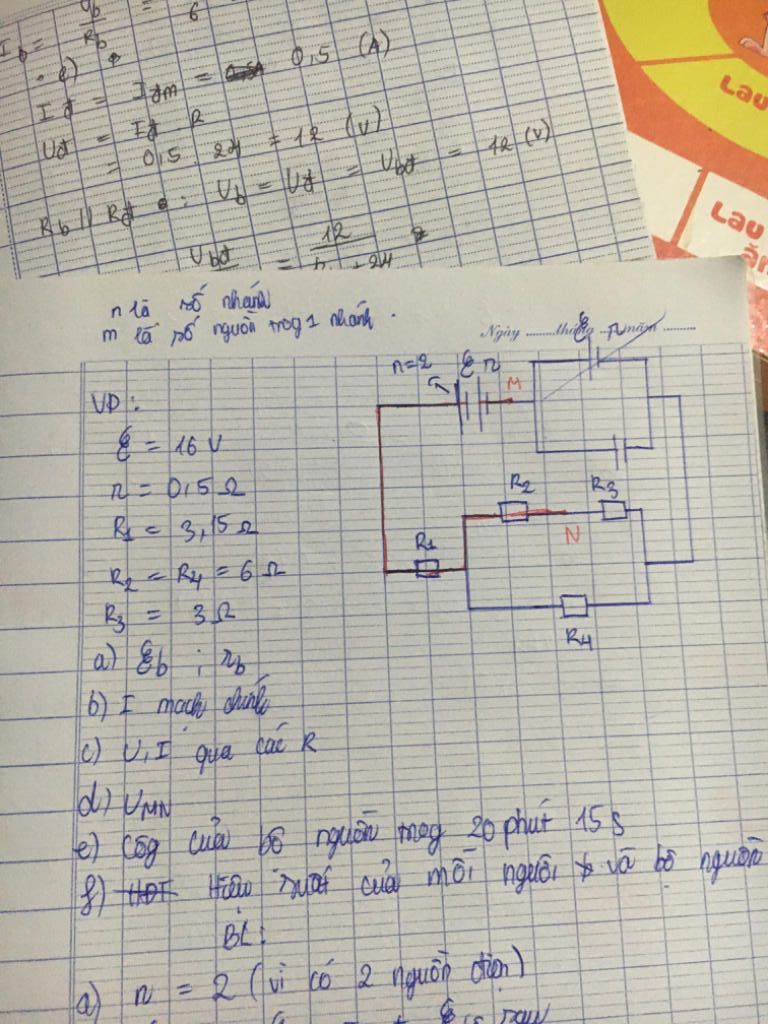 I_b = U_b / R_b = 6
e)
I_đ = I_đm = 0,5 (A)
U_đ = I_đ . R
= 0,5 . 24 = 12 (V)
R_b // R_đ : U_b = U_đ = U_bđ = 12 (V)
U_bđ = 12 / + 24
Lau
Lau
ăn
n là số nhánh
m là số nguồn trog 1 nhánh.
Ngày ........ tháng ........ năm ........
n=2 ℰ r M ℰ r
VD:
ℰ = 16 V
r = 0,5 Ω
R1 = 3,15 Ω
R2 = R4 = 6 Ω
R3 = 3 Ω
R2 R3
R1 N
R4
a) ℰb ; rb
b) I mạch chính
c) U, I qua các R
d) UMN
e) Côg của bộ nguồn trog 20 phút 15 s
f) HĐT Hiệu suất của mỗi nguồn và bộ nguồn
BL:
a) n = 2 (vì có 2 nguồn điện)